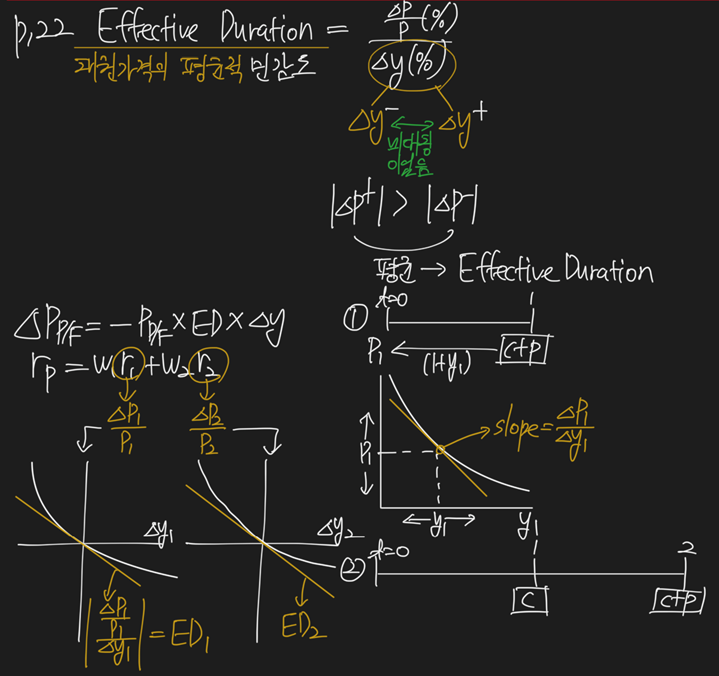 p.22 Effective Duration = ΔP/P(%) / Δy(%)
채권가격의 평균적 민감도
Δy⁻ ↔ Δy⁺
비대칭
있음
|ΔP⁺| > |ΔP⁻|
평균 → Effective Duration
ΔP_P/F = -P_P/F × ED × Δy
r_P = w₁r₁ + w₂r₂
ΔP₁/P₁
ΔP₂/P₂
Δy₁
Δy₂
|ΔP₁/P₁ / Δy₁| = ED₁
ED₂
① t=0 1
P₁ ← (1+y₁) C+P
slope = ΔP₁/Δy₁
P₁
← y₁ → y₁
② t=0 2
C C+P